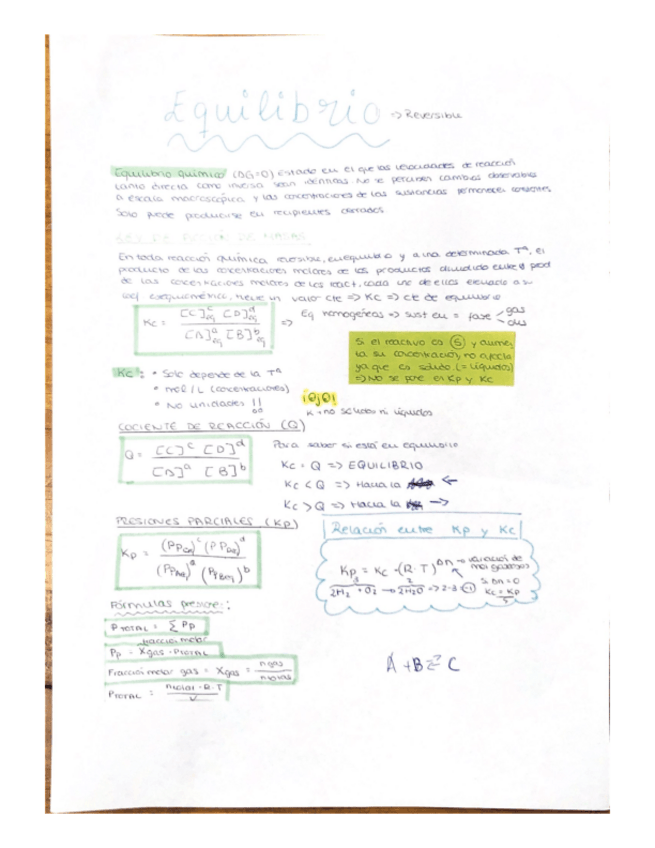 Equilibrio => Reversible
Equilibrio químico (ΔG=0) estado en el que las velocidades de reacción
tanto directa como inversa sean idénticas. No se perciben cambios observables
a escala macroscópica y las concentraciones de las sustancias permanecen constantes
Solo puede producirse en recipientes cerrados.
LEY DE ACCIÓN DE MASAS
En toda reacción química reversible, en equilibrio y a una determinada Tª, el
producto de las concentraciones molares de los productos dividido entre el prod
de las concentraciones molares de los react, cada una de ellas elevado a su
coef estequiométrico, tiene un valor cte => Kc => cte de equilibrio
Kc = [C]^c_eq [D]^d_eq / [A]^a_eq [B]^b_eq => Eq homogéneas => sust en = fase gas
dis
Si el reactivo es (S) y aumen
ta su concentración, no afecta
ya que es sólido (= líquidos)
=> No se pone en Kp y Kc
Kc: • Solo depende de la Tª
• mol/L (concentraciones)
• No unidades !!
¡Ojo!
K → no sólidos ni líquidos
COCIENTE DE REACCIÓN (Q)
Q = [C]^c [D]^d / [A]^a [B]^b
Para saber si está en equilibrio
Kc = Q => EQUILIBRIO
Kc < Q => Hacia la ←
Kc > Q => Hacia la →
PRESIONES PARCIALES (Kp)
Kp = (Pp)^c (Pp)^d / (Pp)^a (Pp)^b
Relación entre Kp y Kc
Kp = Kc · (R·T)^Δn → variación de
mol gaseosos
2H2 + O2 → 2H2O => 2-3 (-1)
3 2
Si Δn=0
Kc = Kp
Fórmulas presione:
P TOTAL = Σ Pp
fracción molar
Pp = Xgas · P TOTAL
Fracción molar gas = Xgas = n gas / n totas
P TOTAL = n total · R · T / V
A + B ⇄ C